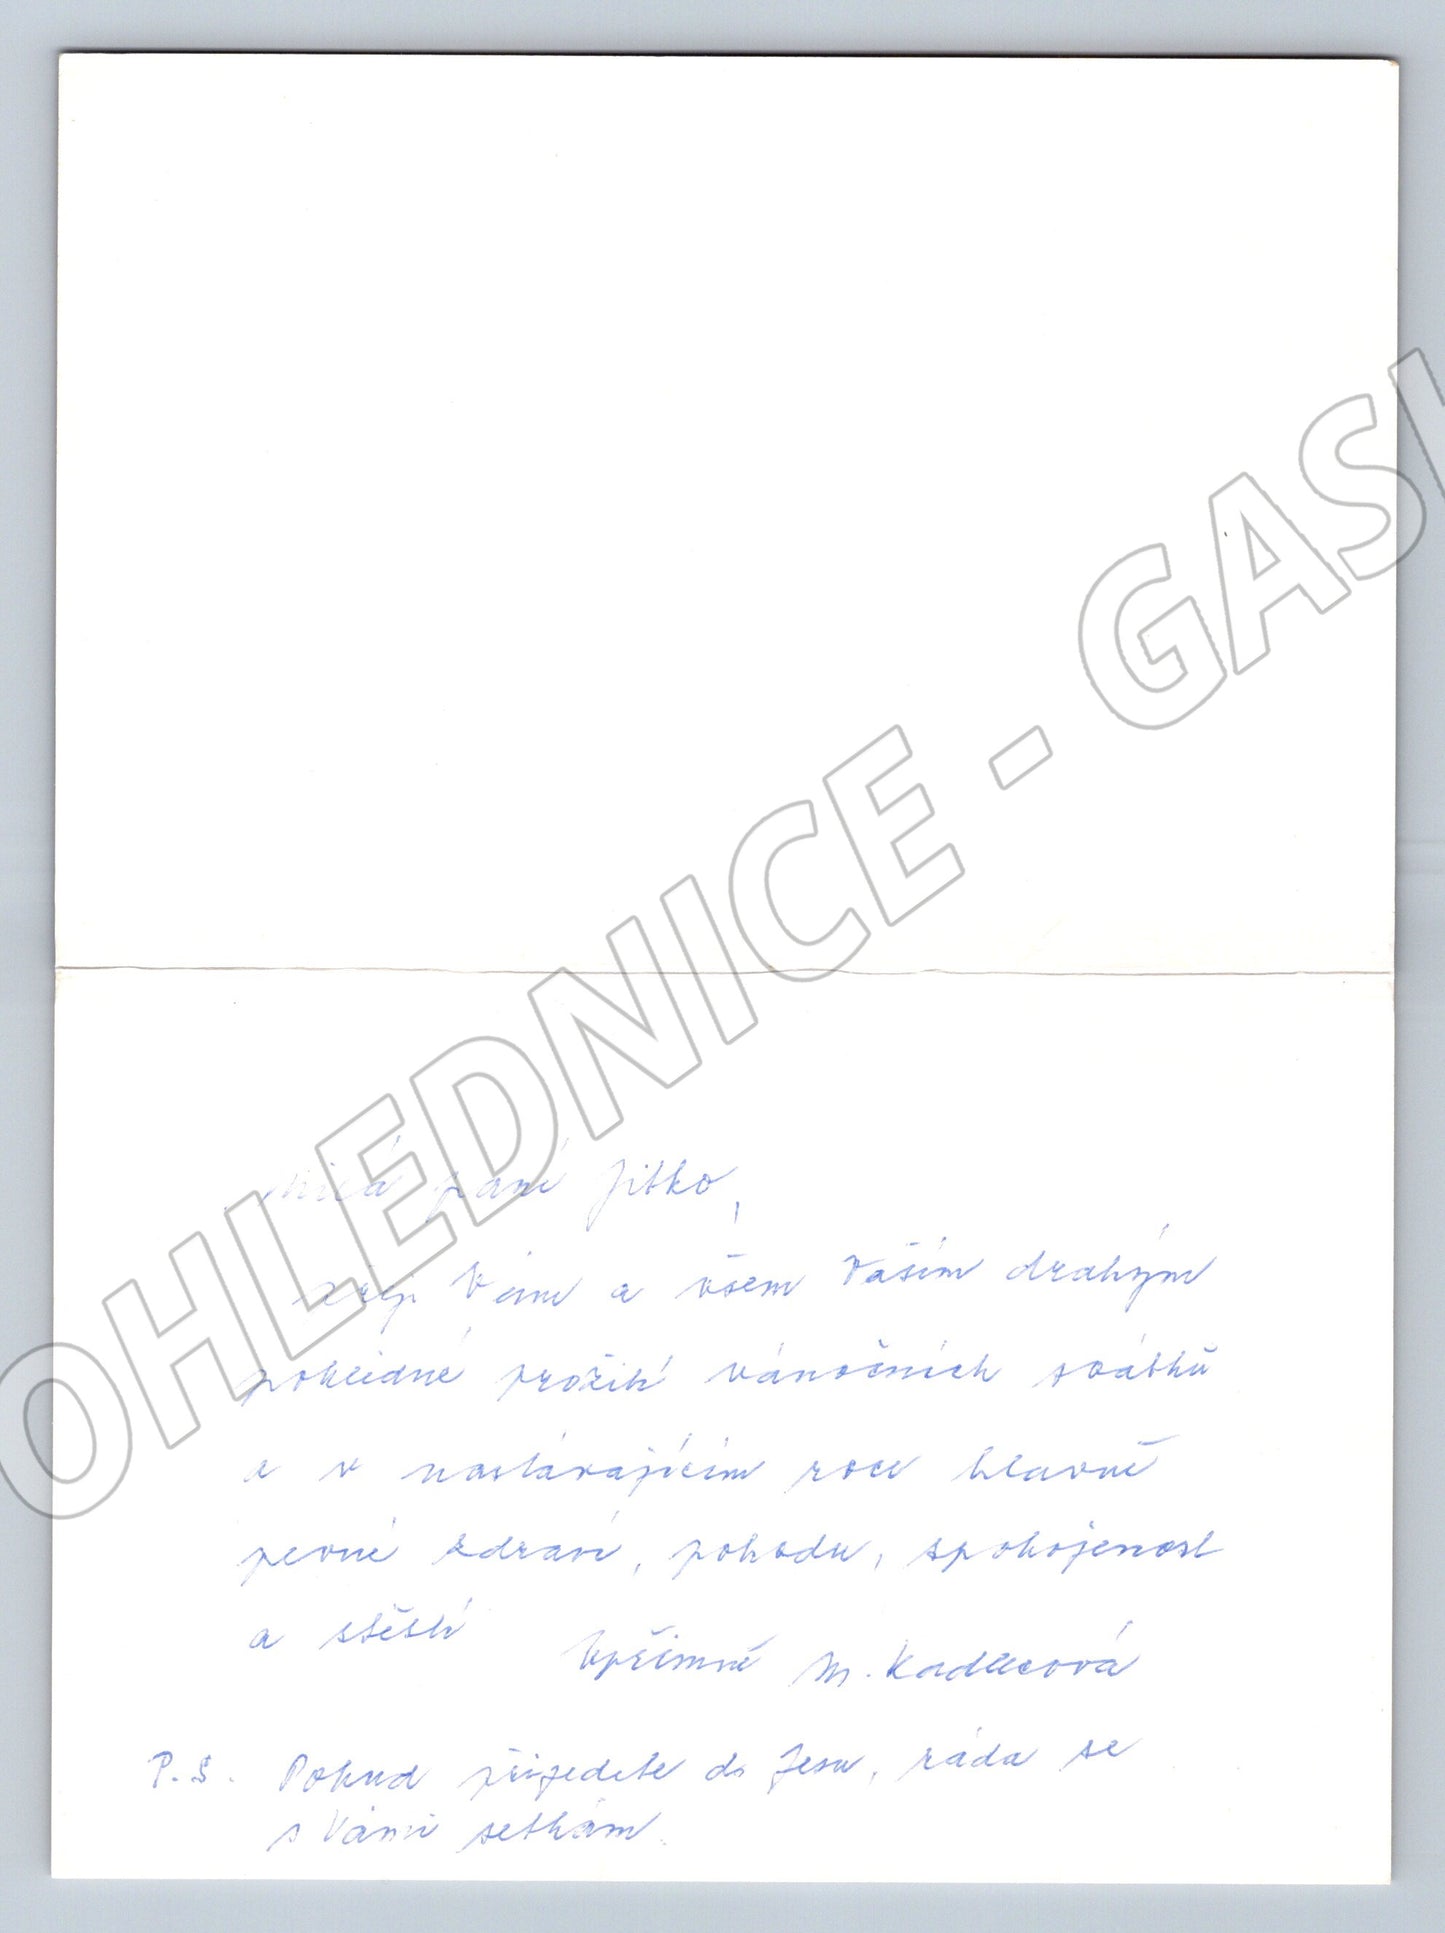 Milá paní Jitko,
přeji Vám a všem Vaším drahým
poklidné prožití vánočních svátků
a v nastávajícím roce hlavně
pevné zdraví, pohodu, spokojenost
a štěstí
Upřímně M. Kadlecová
P.S. Pokud přijedete do Jesu, ráda se
s Vámi setkám.
OHLEDNICE - GAS